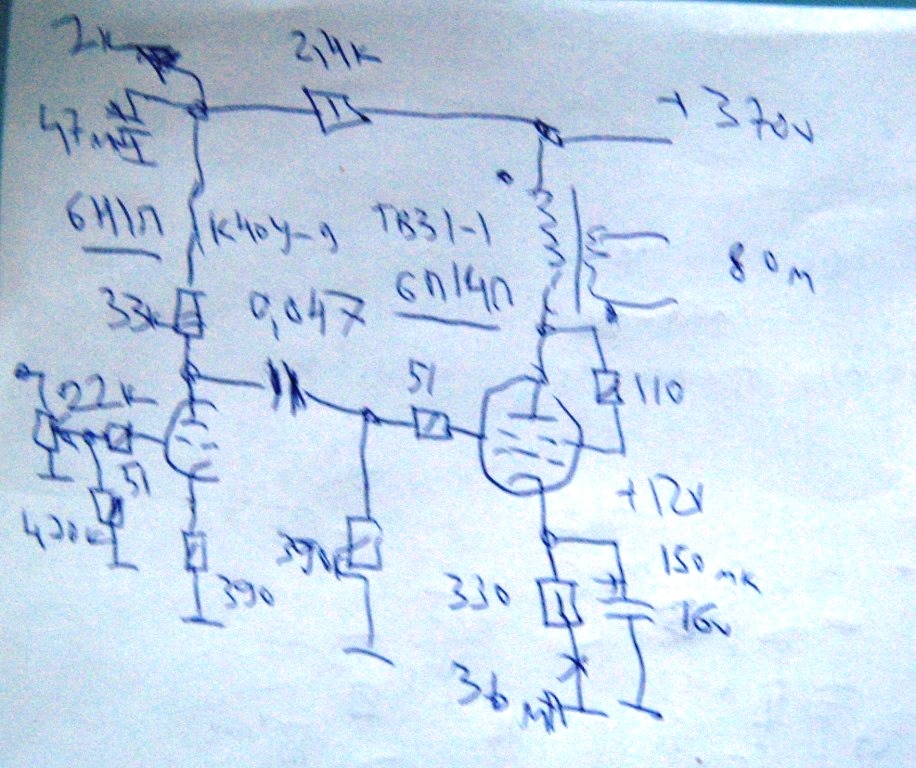 2к
2,4к
+370v
47мк
6Н1П
К40У-9
ТВЗ1-1
80м
33к
0,047
6П14П
22к
51
110
51
+12v
420к
390
390к
330
150мк
16v
36мА